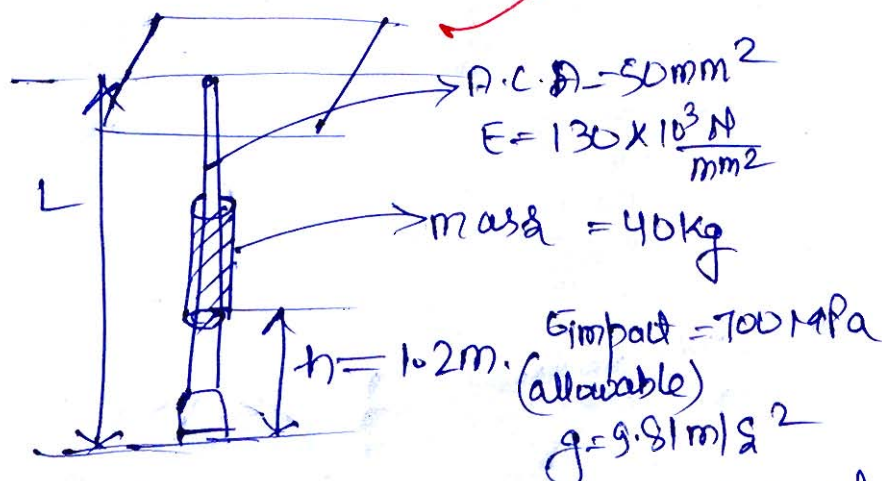 A.C.A = 50mm²
E = 130 × 10³ N/mm²
L
mass = 40kg
h = 1.2m.
σimpact = 700 MPa
(allowable)
g = 9.81 m/s²